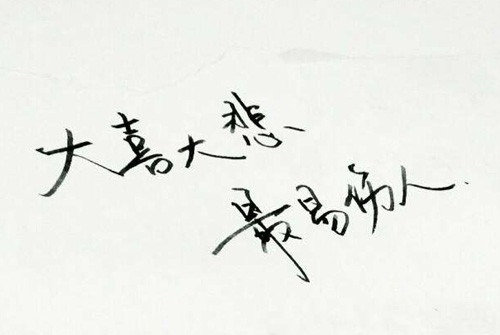 大喜大悲
最易伤人